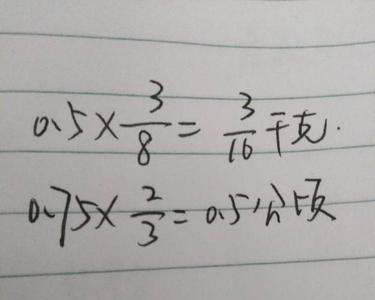 0.5×3/8=3/16千克.
0.75×2/3=0.5公顷